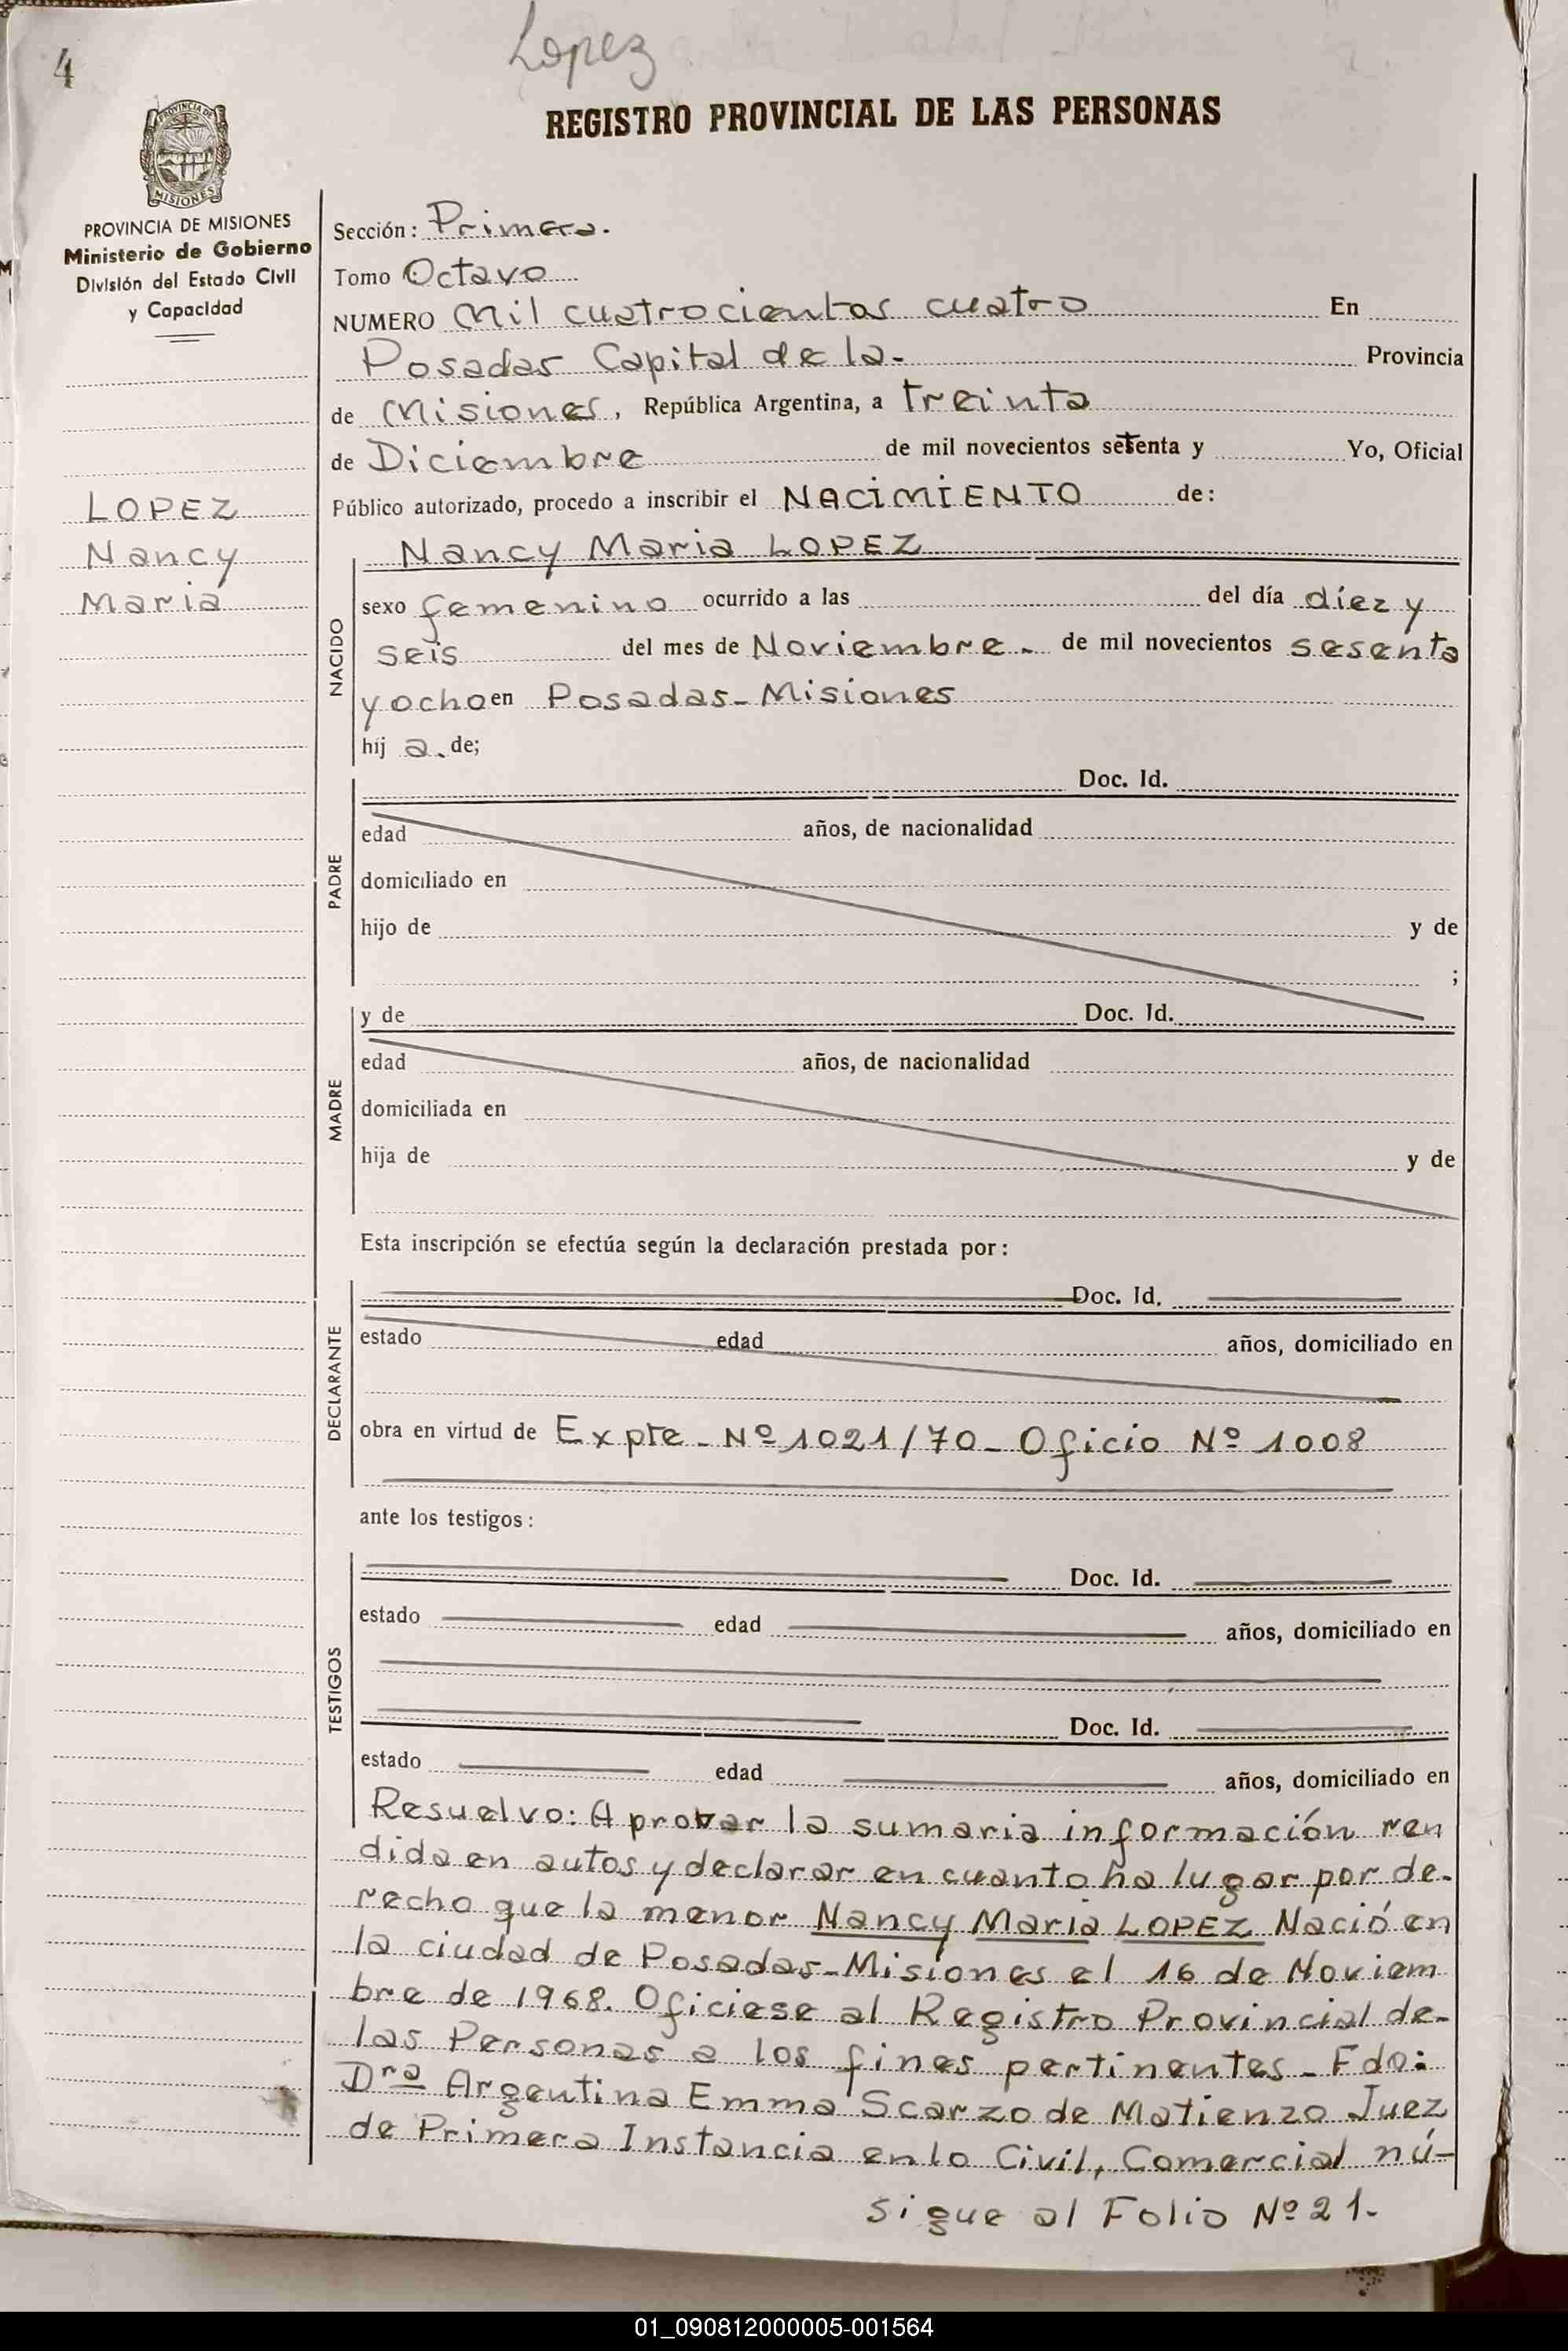 Lopez
4
REGISTRO PROVINCIAL DE LAS PERSONAS
PROVINCIA DE
MISIONES
PROVINCIA DE MISIONES
Ministerio de Gobierno
División del Estado Civil
y Capacidad
LOPEZ
Nancy
Maria
Sección: Primera.
Tomo Octavo
NUMERO Mil cuatrocientos cuatro En
Posadas Capital de la- Provincia
de Misiones, República Argentina, a treinta
de Diciembre de mil novecientos setenta y Yo, Oficial
Público autorizado, procedo a inscribir el NACIMIENTO de:
Nancy Maria LOPEZ
NACIDO
sexo femenino ocurrido a las del día diez y
seis del mes de Noviembre - de mil novecientos sesenta
y ocho en Posadas - Misiones
hij a. de;
PADRE
Doc. Id.
edad años, de nacionalidad
domiciliado en
hijo de y de
;
MADRE
y de Doc. Id.
edad años, de nacionalidad
domiciliada en
hija de y de
Esta inscripción se efectúa según la declaración prestada por:
DECLARANTE
Doc. Id.
estado edad años, domiciliado en
obra en virtud de Expte - Nº 1021/70 - Oficio Nº 1008
ante los testigos:
TESTIGOS
Doc. Id.
estado edad años, domiciliado en
Doc. Id.
estado edad años, domiciliado en
Resuelvo: Aprobar la sumaria información ren
dida en autos y declarar en cuanto ha lugar por de-
recho que la menor Nancy Maria LOPEZ Nació en
la ciudad de Posadas - Misiones el 16 de Noviem
bre de 1968. Oficiese al Registro Provincial de-
las Personas a los fines pertinentes - Fdo:
Dra Argentina Emma Scarzo de Matienzo Juez
de Primera Instancia en lo Civil, Comercial nú-
sigue al Folio Nº 21.
01_090812000005-001564